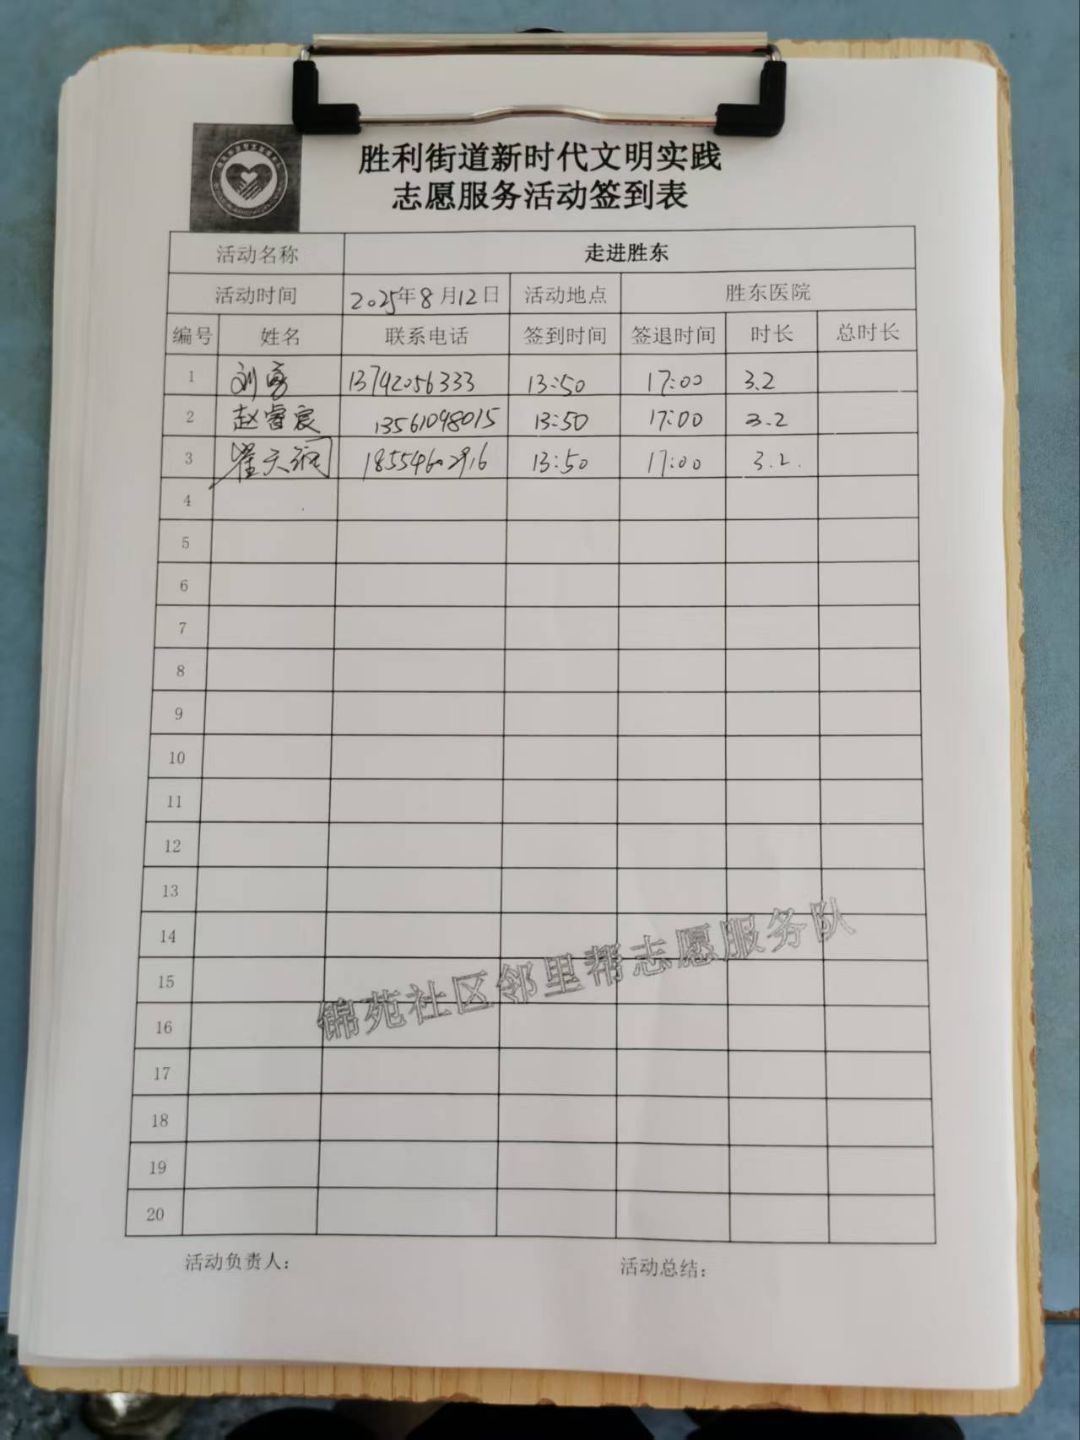 胜利街道新时代文明实践
志愿服务活动签到表
活动名称 走进胜东
活动时间 2025年8月12日 活动地点 胜东医院
编号 姓名 联系电话 签到时间 签退时间 时长 总时长
1 刘勇 13742056333 13:50 17:00 3.2
2 赵睿宸 13561098015 13:50 17:00 3.2
3 翟天润 13:50 17:00 3.2.
4
5
6
7
8
9
10
11
12
13
14
15
16
17
18
19
20
锦苑社区邻里帮志愿服务队
活动负责人： 活动总结：